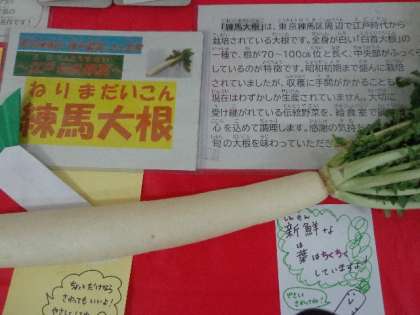 ねりまだいこん
練馬大根
「練馬大根」は、東京練馬区周辺で江戸時代から
栽培されている大根です。全身が白い「白首大根」の
一種で、根が70～100cm位と長く、中央部がふっく
しているのが特徴です。昭和初期まで盛んに栽培
されていましたが、収穫に手間がかかることも
現在はわずかしか生産されていません。大切に
受け継がれている伝統野菜を、給食室で
心を込めて調理します。感謝の気持ち
旬の大根を味わっていただ
しんせん
新鮮な
は
葉はちくちく
していますよ!
やさしく
さわってね!
ちょっとだけなら
さわってもいいよ!
やさしく